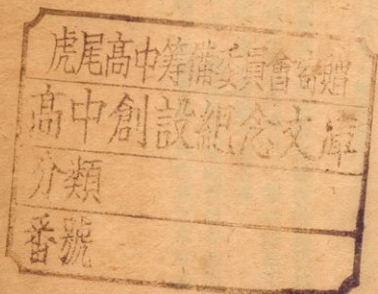 虎尾高中籌備委員會寄贈
高中創設紀念文庫
分類
番號